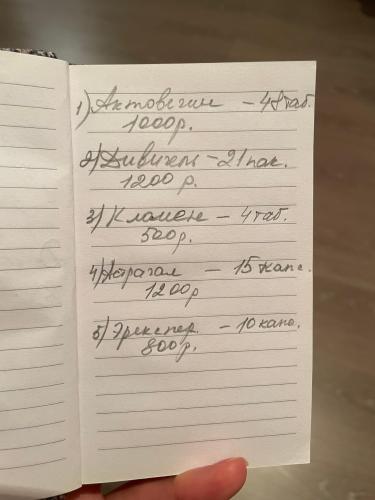 1) Актовегин - 48 таб.
1000 р.
2) Дивигель - 21 пак.
1200 р.
3) Кломен - 4 таб.
500 р.
4) Астрагал - 15 капс.
1200 р
5) - 10 капс.
800 р.